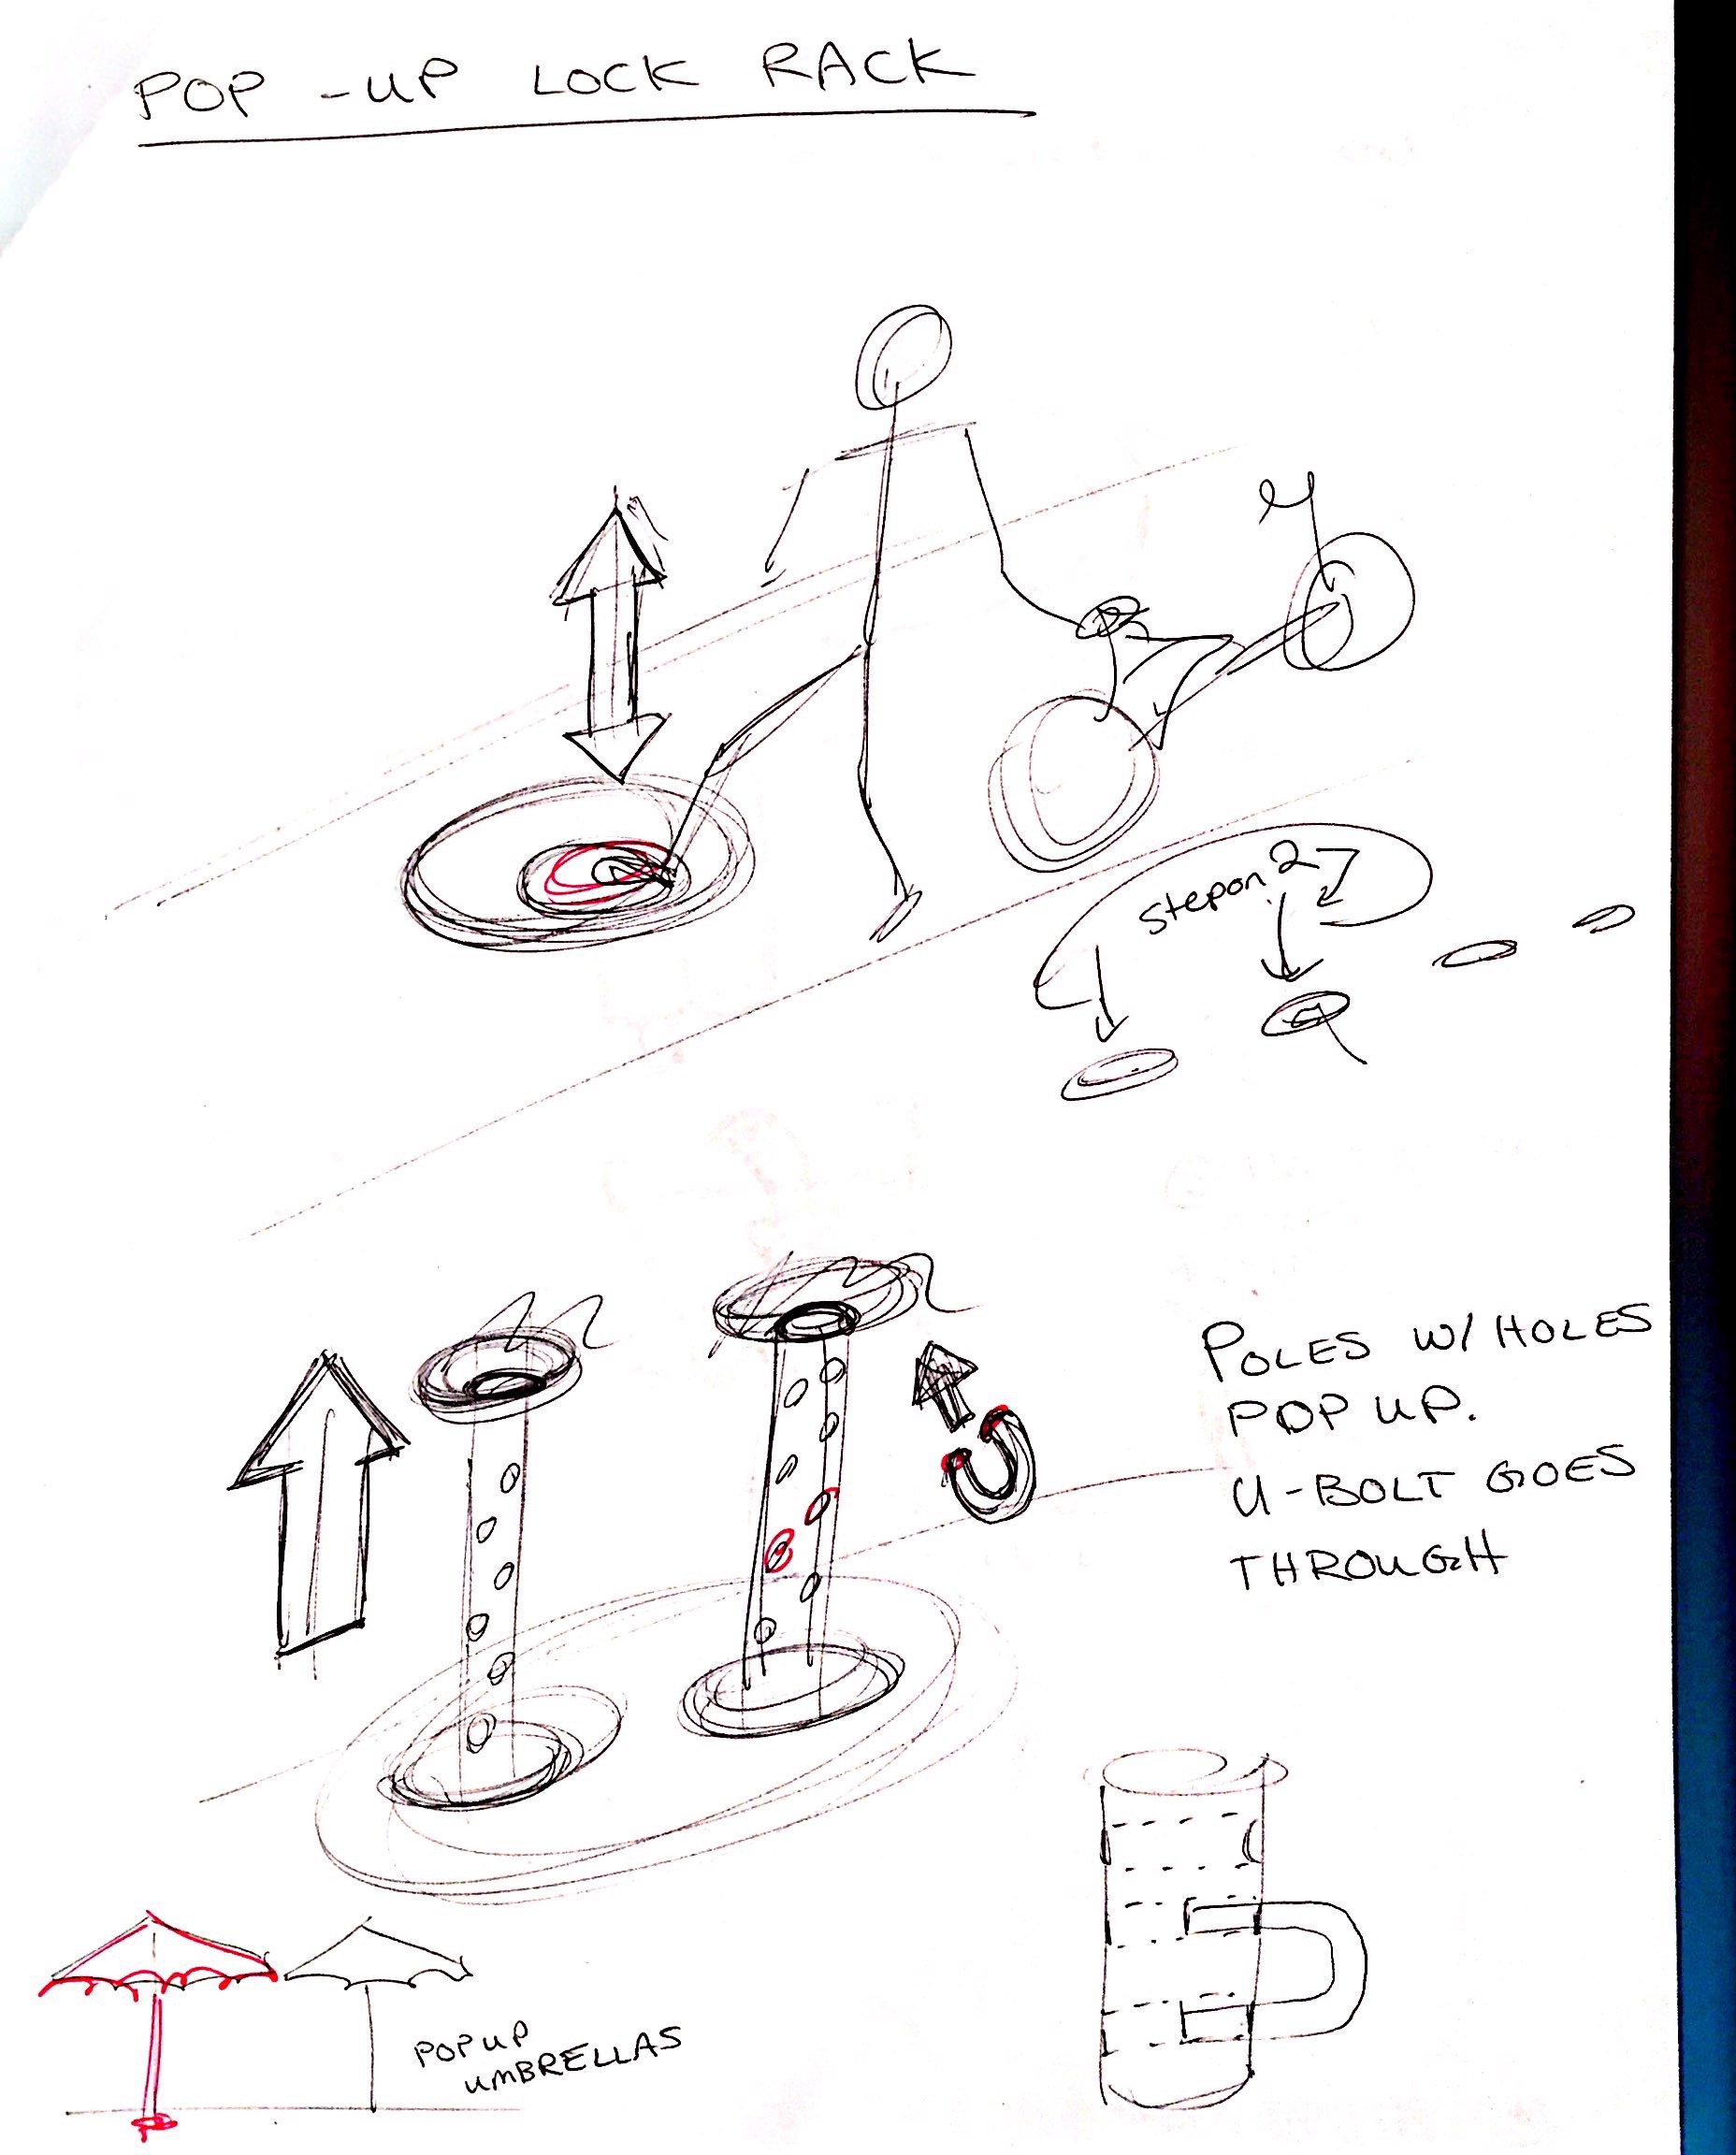 POP-UP LOCK RACK
Step on 2
POLES W/ HOLES
POP UP.
U-BOLT GOES
THROUGH
POP UP
UMBRELLAS